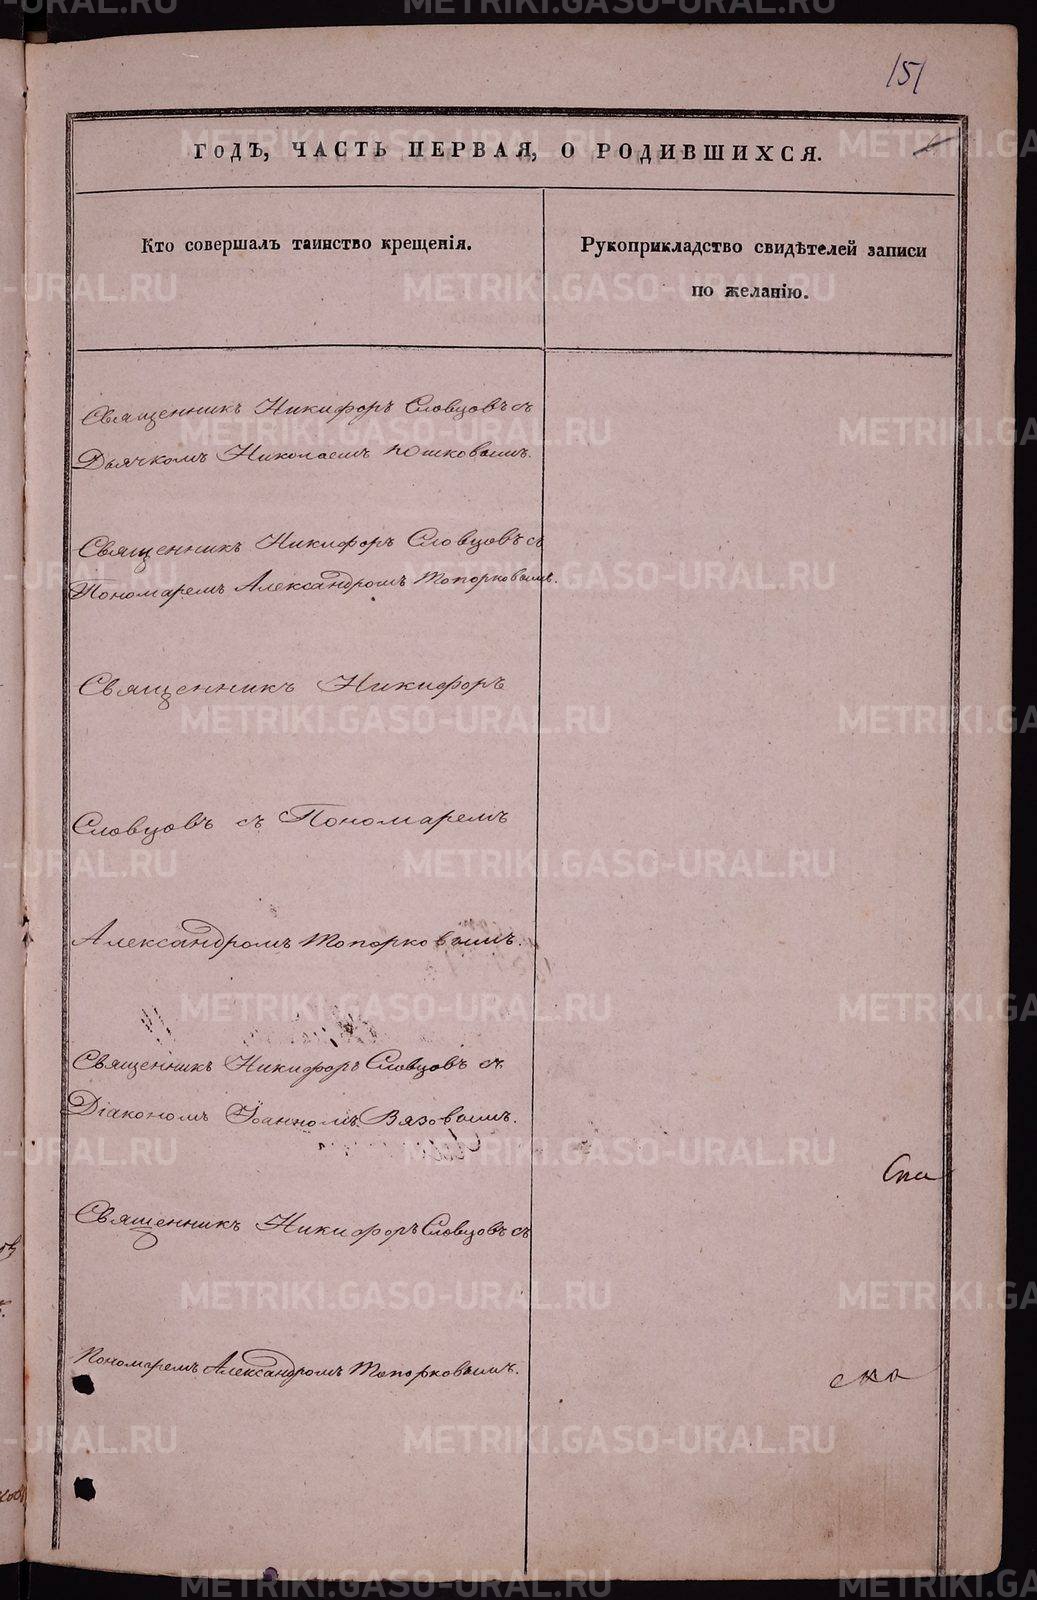 151
ГОДЪ, ЧАСТЬ ПЕРВАЯ, О РОДИВШИХСЯ.
Кто совершалъ таинство крещенія.
Рукоприкладство свидѣтелей записи
по желанію.
Священникъ Никифоръ Словцовъ съ
Дьячкомъ Николаемъ Юшковымъ.
Священникъ Никифоръ Словцовъ съ
Пономаремъ Александромъ Топорковымъ.
Священникъ Никифоръ
Словцовъ съ Пономаремъ
Александромъ Топорковымъ.
Священникъ Никифоръ Словцовъ съ
Діакономъ Іоанномъ Вязовымъ.
Спи
Священникъ Никифоръ Словцовъ съ
Пономаремъ Александромъ Топорковымъ.
ска
METRIKI.GASO-URAL.RU